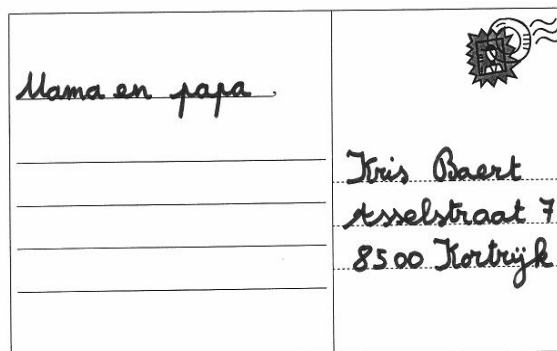 Mama en papa.
Kris Baert
Asselstraat 7
8500 Kortrijk